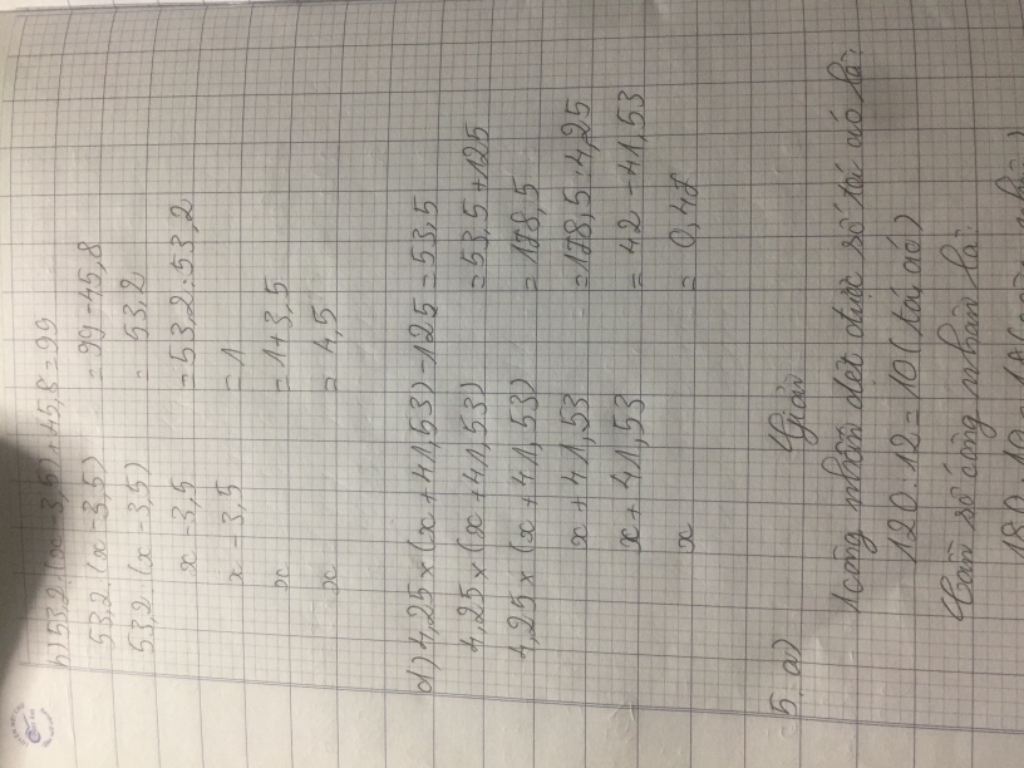 b) 53,2 : (x - 3,5) + 45,8 = 99
53,2 : (x - 3,5) = 99 - 45,8
53,2 : (x - 3,5) = 53,2
x - 3,5 = 53,2 : 53,2
x - 3,5 = 1
x = 1 + 3,5
x = 4,5
d) 4,25 x (x + 41,53) - 125 = 53,5
4,25 x (x + 41,53) = 53,5 + 125
4,25 x (x + 41,53) = 178,5
x + 41,53 = 178,5 : 4,25
x + 41,53 = 42 - 41,53
x = 0,47
5: a) Giải
1 công nhân dệt được số tá áo là:
120 : 12 = 10 (tá áo)
Cần số công nhân là:
180 : 10 = 18